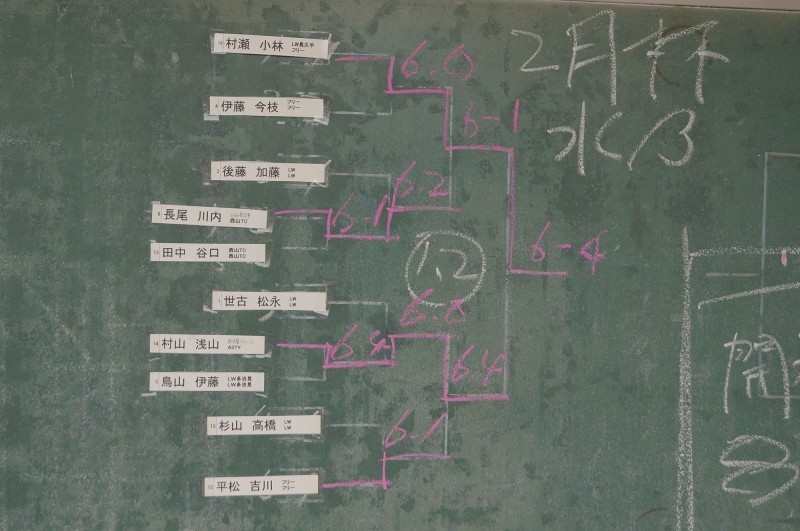 村瀬 小林 LW長久手 フリー
伊藤 今枝 フリー フリー
後藤 加藤 LW LW
長尾 川内 西山TC
田中 谷口 西山TC 西山TC
世古 松永 LW LW
村山 浅山 ASTY
鳥山 伊藤 LW多治見 LW多治見
杉山 高橋 LW LW
平松 吉川 フリー フリー
6-0
6-1
6-2
6-1
6-4
1,2
6-0
6-4
64
6-1
2月杯
水/3
開
8